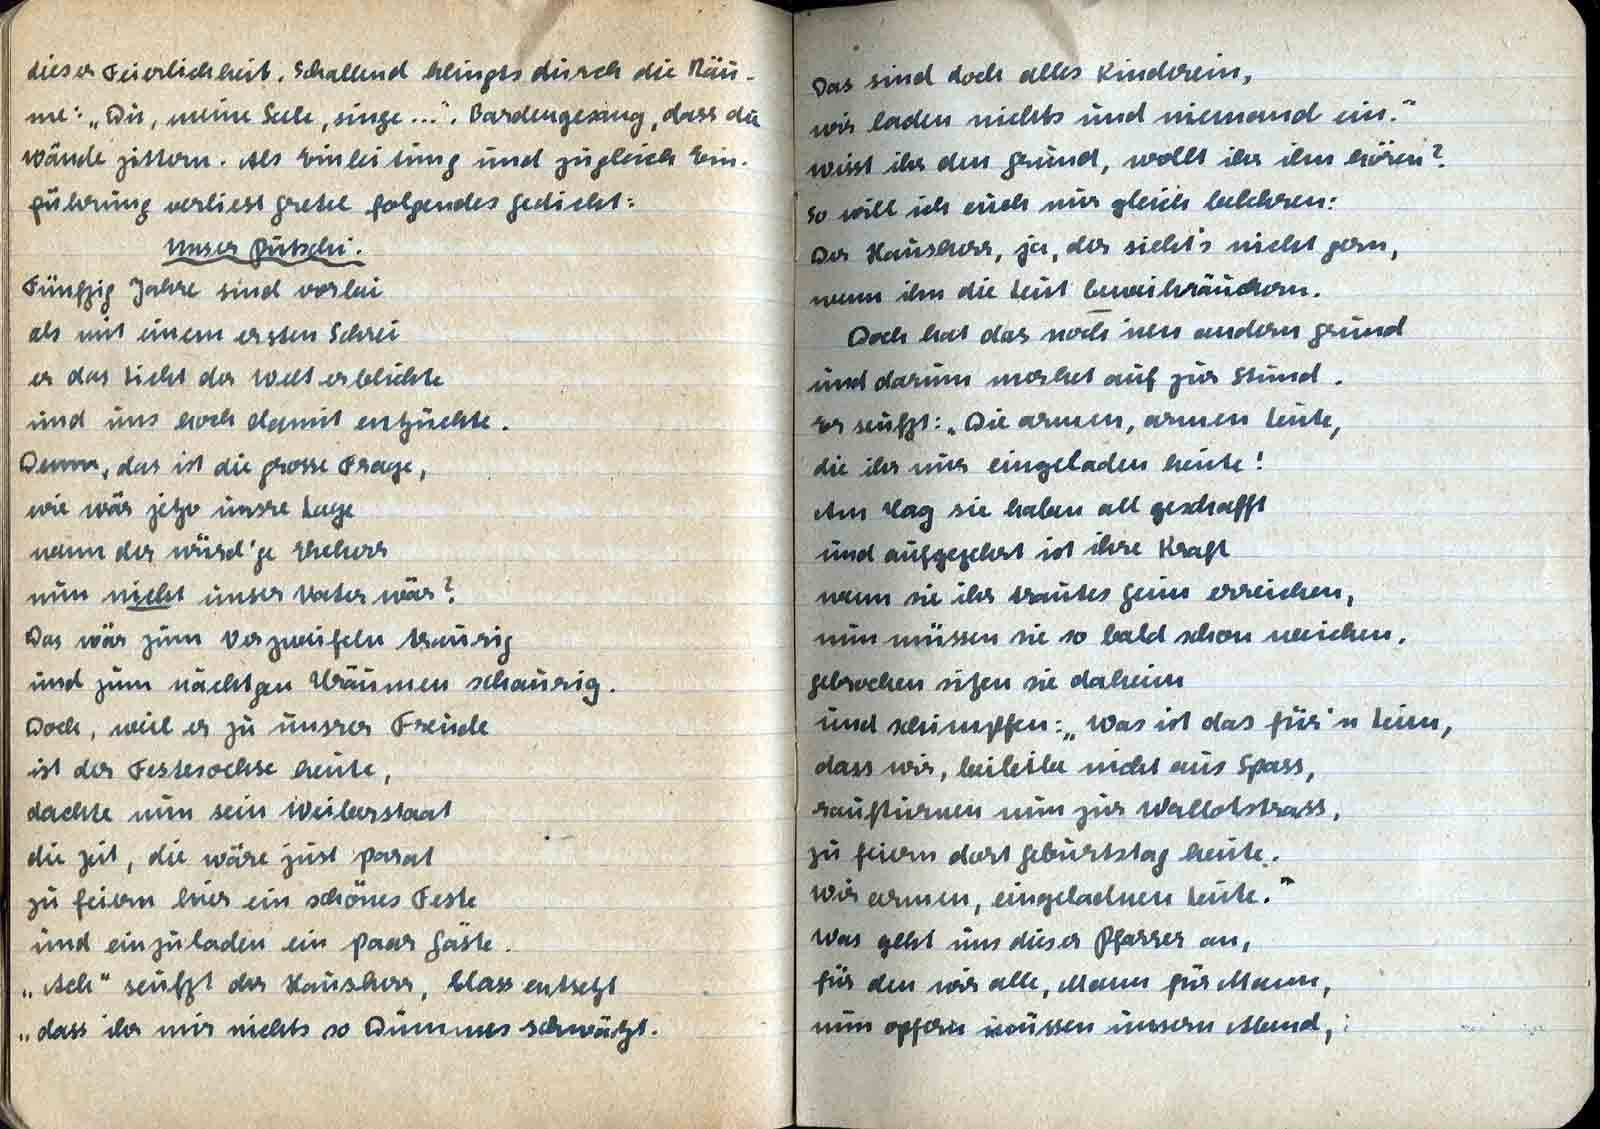 dieser Feierlichkeit. Schallend klingts durch die Räu-
me: „Du, meine Seele, singe ...". Bardengesang, dass die
Wände zittern. Als Einleitung und zugleich Ein-
führung verliest Gretel folgendes Gedicht:
Unser Putschi.
Fünfzig Jahre sind vorbei
als mit einem ersten Schrei
er das Licht der Welt erblickte
und uns hoch damit entzückte.
Denn, das ist die grosse Frage,
wie wär jetzo unsre Lage
wenn der würd'ge Eheherr
nun nicht unser Vater wär?
Das wär zum Verzweifeln traurig
und zum nächtgen Träumen schaurig.
Doch, weil er zu unsrer Freude
ist der Festesochse heute,
dachte nun sein Weiberstaat
die Zeit, die wäre just parat
zu feiern hier ein schönes Feste
und einzuladen ein paar Gäste.
„Ach" seufzt der Hausherr, blass entsetzt
„dass ihr mir nichts so Dummes schwätzt.
Das sind doch alles Kinderein,
wir laden nichts und niemand ein."
Wisst ihr den Grund, wollt ihr ihn hören?
So will ich euch nur gleich belehren:
Der Hausherr, ja, der sieht's nicht gern,
wenn ihn die Leut beweihräuchern.
Doch hat das noch 'nen andern Grund
und darum merket auf zur Stund.
Er seufzt: „Die armen, armen Leute,
die ihr mir eingeladen heute!
Am Tag sie haben all geschafft
und aufgezehrt ist ihre Kraft
wenn sie ihr trautes Heim erreichen,
nun müssen sie so bald schon weichen.
Gebrochen sitzen sie daheim
und schimpfen: „Was ist das für'n Leim,
dass wir, beileibe nicht aus Spass,
rauftürnen nun zur Wallotstrass,
zu feiern dort Geburtstag heute.
Wir armen, eingeladnen Leute."
Was geht uns dieser Pfarrer an,
für den wir alle, Mann für Mann,
nun opfern müssen unsern Abend,